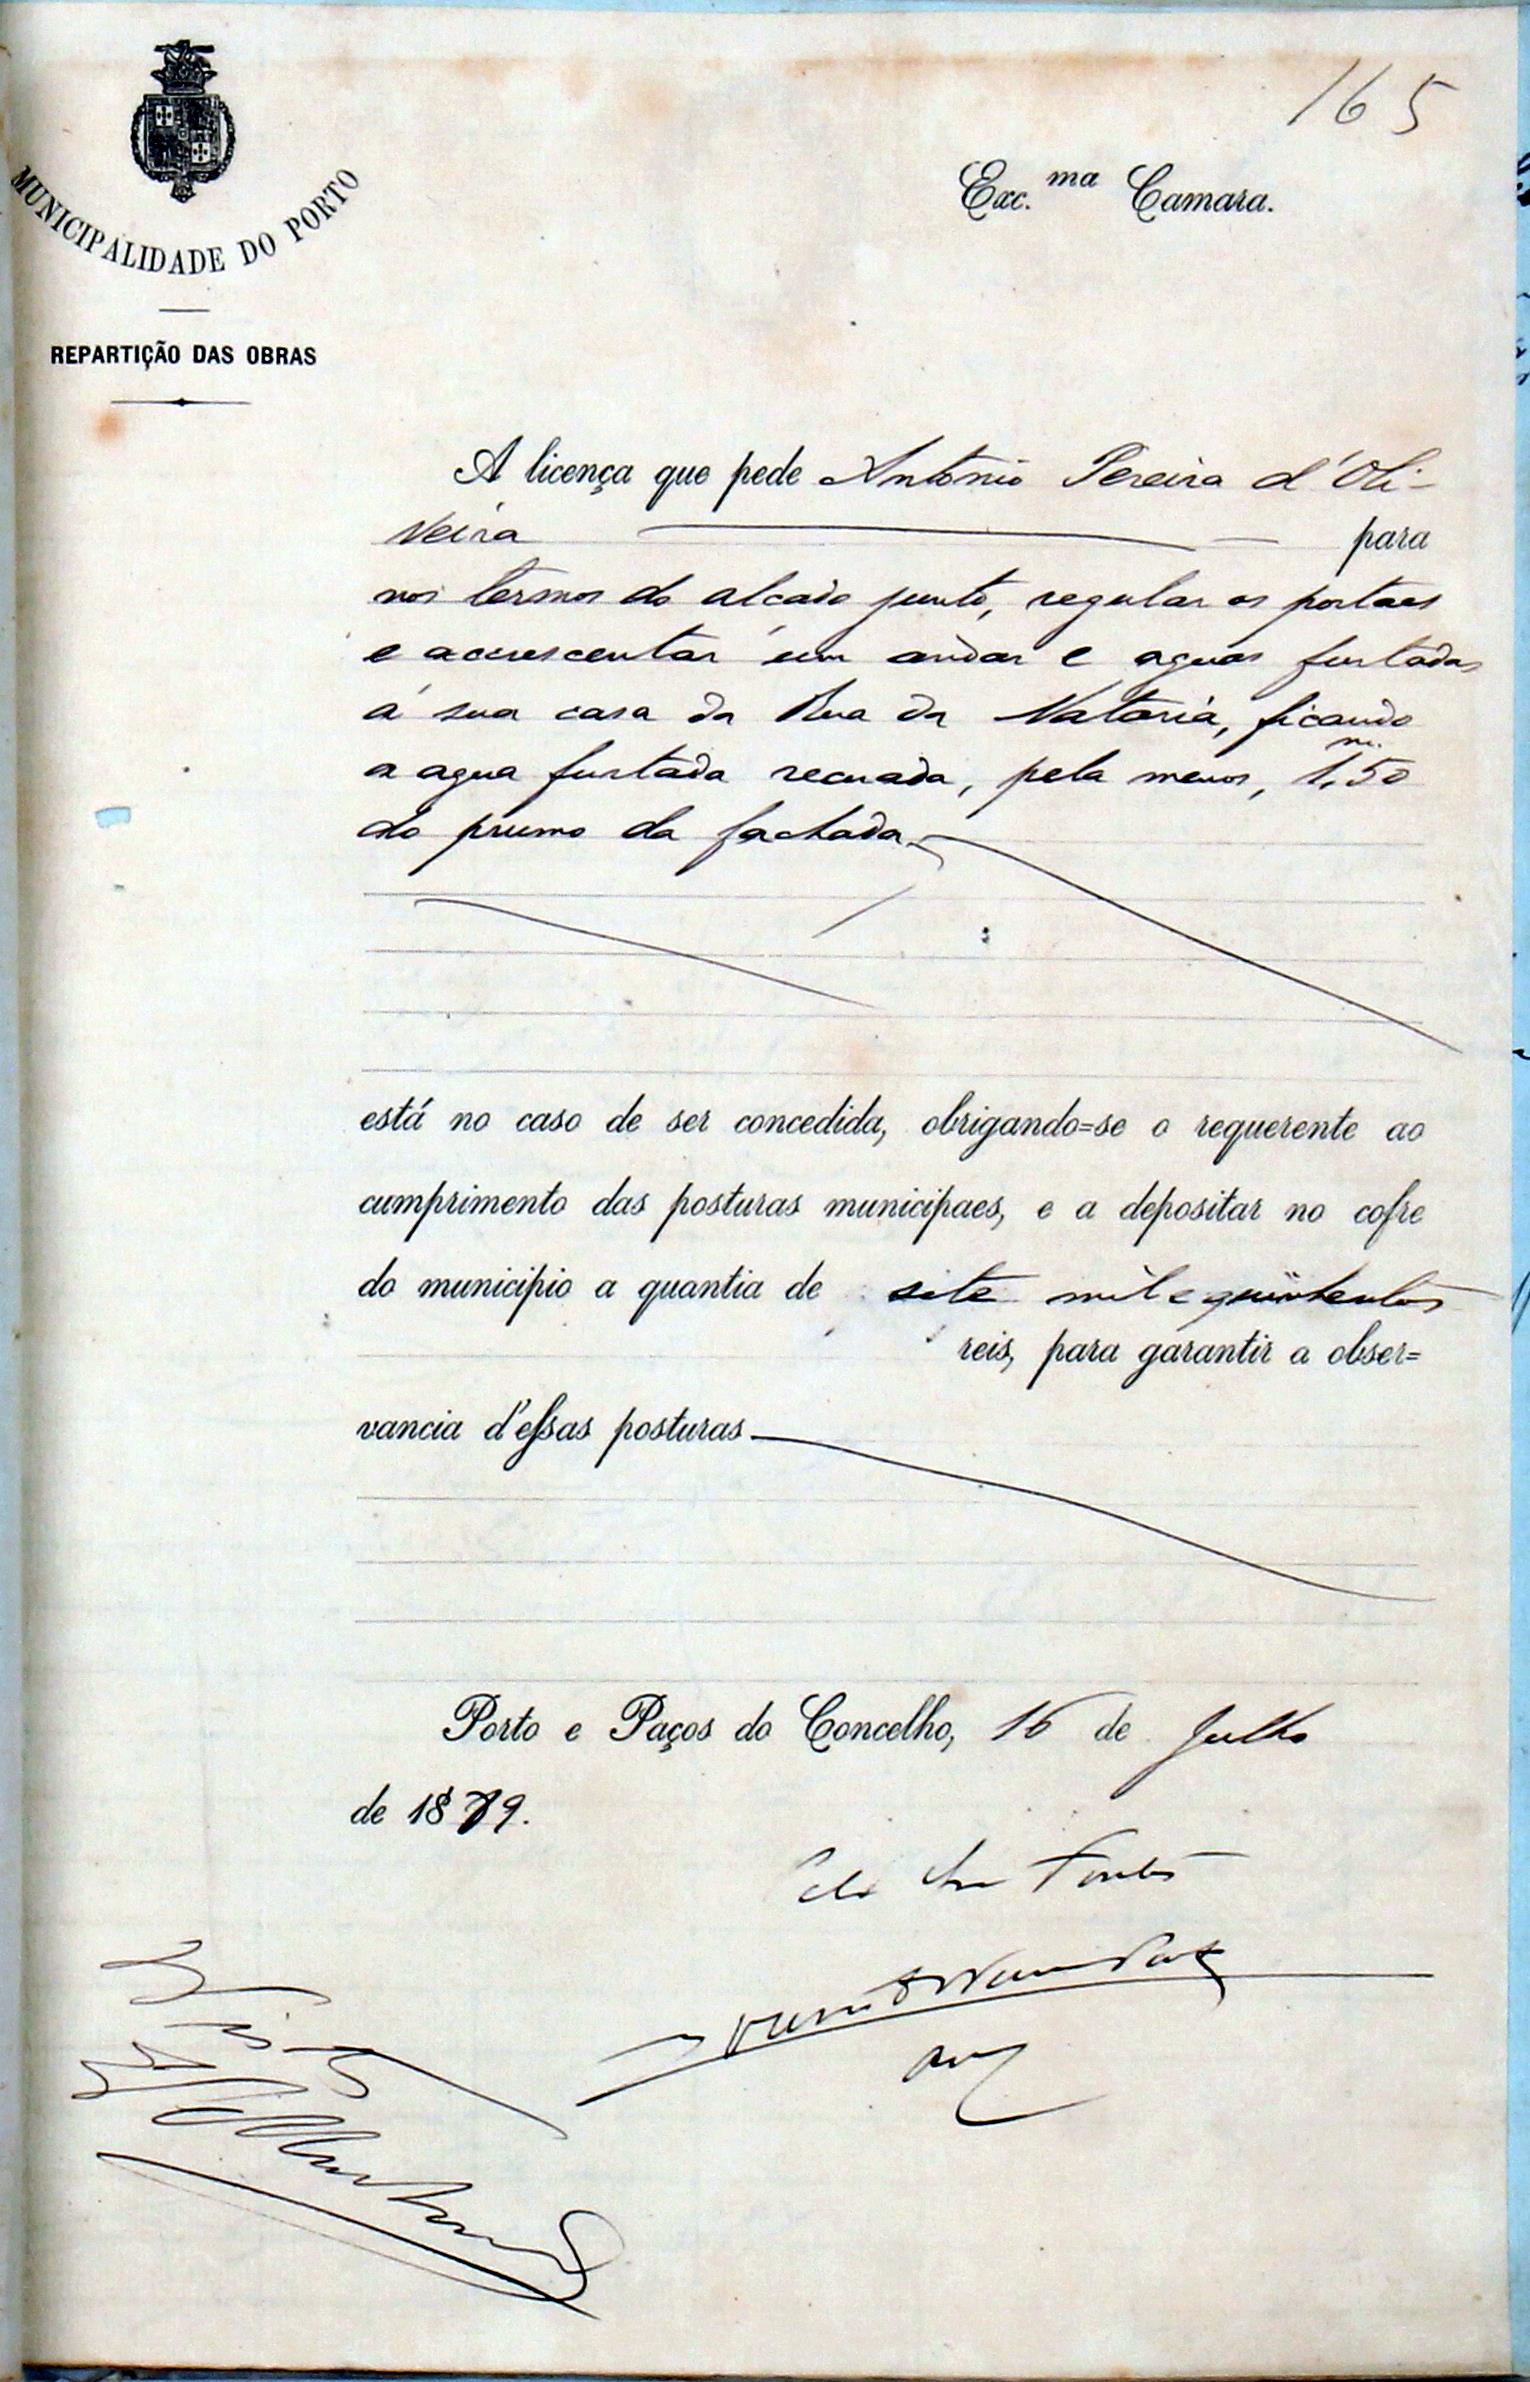 165
MUNICIPALIDADE DO PORTO
REPARTIÇÃO DAS OBRAS
Exc.ma Camara.
A licença que pede Antonio Pereira d'Oli-
veira para
nos termos do alçado junto, regular os portaes
e accrescentar um andar e aguas furtadas
á sua casa da Rua da Victoria, ficando
a agua furtada recuada, pelo menos, 1,m.50
do prumo da fachada
está no caso de ser concedida, obrigando=se o requerente ao
cumprimento das posturas municipaes, e a depositar no cofre
do municipio a quantia de sete mil e quinhentos
reis, para garantir a obser=
vancia d'essas posturas
Porto e Paços do Concelho, 16 de Julho
de 1879.
Visto